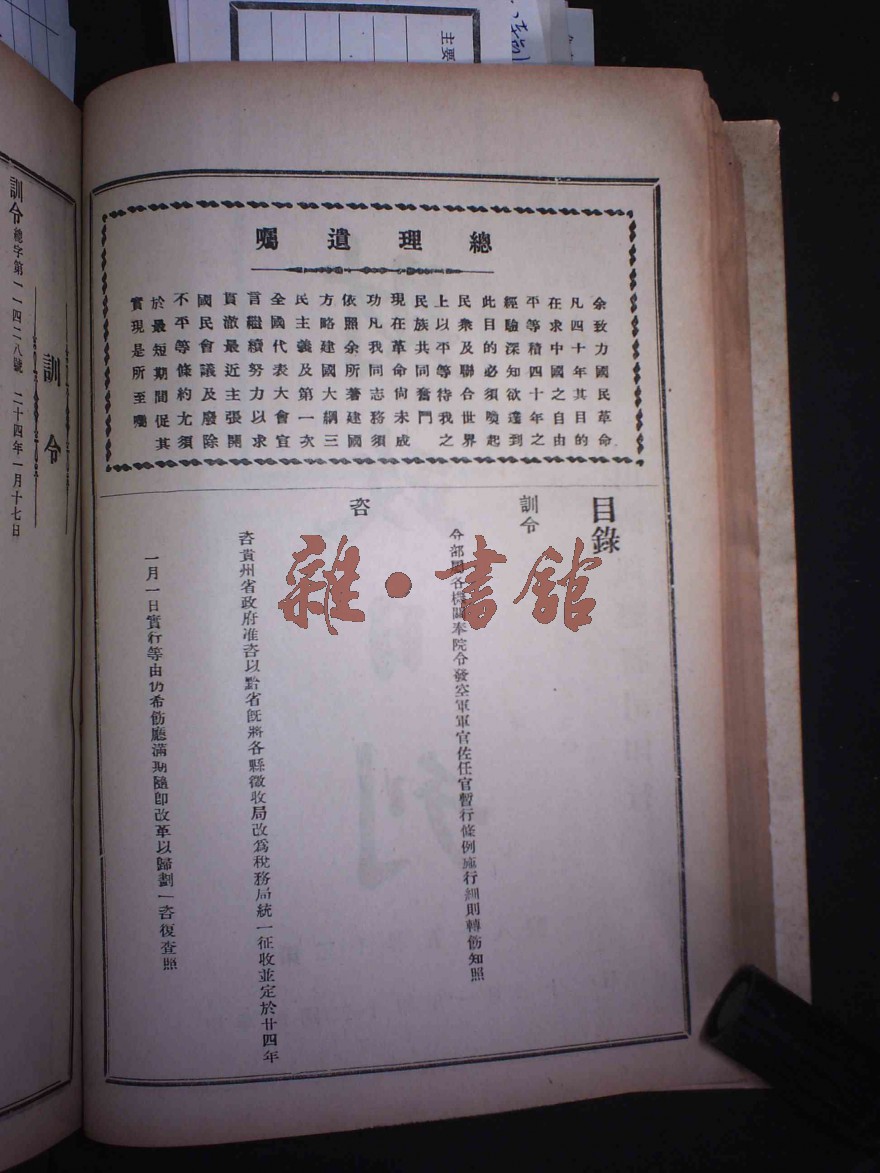 總理遺囑
余致力國民革命
凡四十年其目的
在求中國之自由
平等積四十年之
經驗深知欲達到
此目的必須喚起
民衆及聯合世界
上以平等待我之
民族共同奮鬥
現在革命尙未成
功凡我同志務須
依照余所著建國
方略建國大綱三
民主義及第一次
全國代表大會宣
言繼續努力以求
貫澈最近主張開
國民會議及廢除
不平等條約尤須
於最短期間促其
實現是所至囑
目錄
訓令
令部屬各機關奉院令發空軍軍官佐任官暫行條例施行細則轉飭知照
咨
咨貴州省政府准咨以黔省旣將各縣徵收局改爲稅務局統一征收並定於廿四年
一月一日實行等由仍希飭廳滿期隨卽改革以歸劃一咨復查照
訓令
訓令總字第一一四二八號 二十四年一月十七日
雜·書館
主要